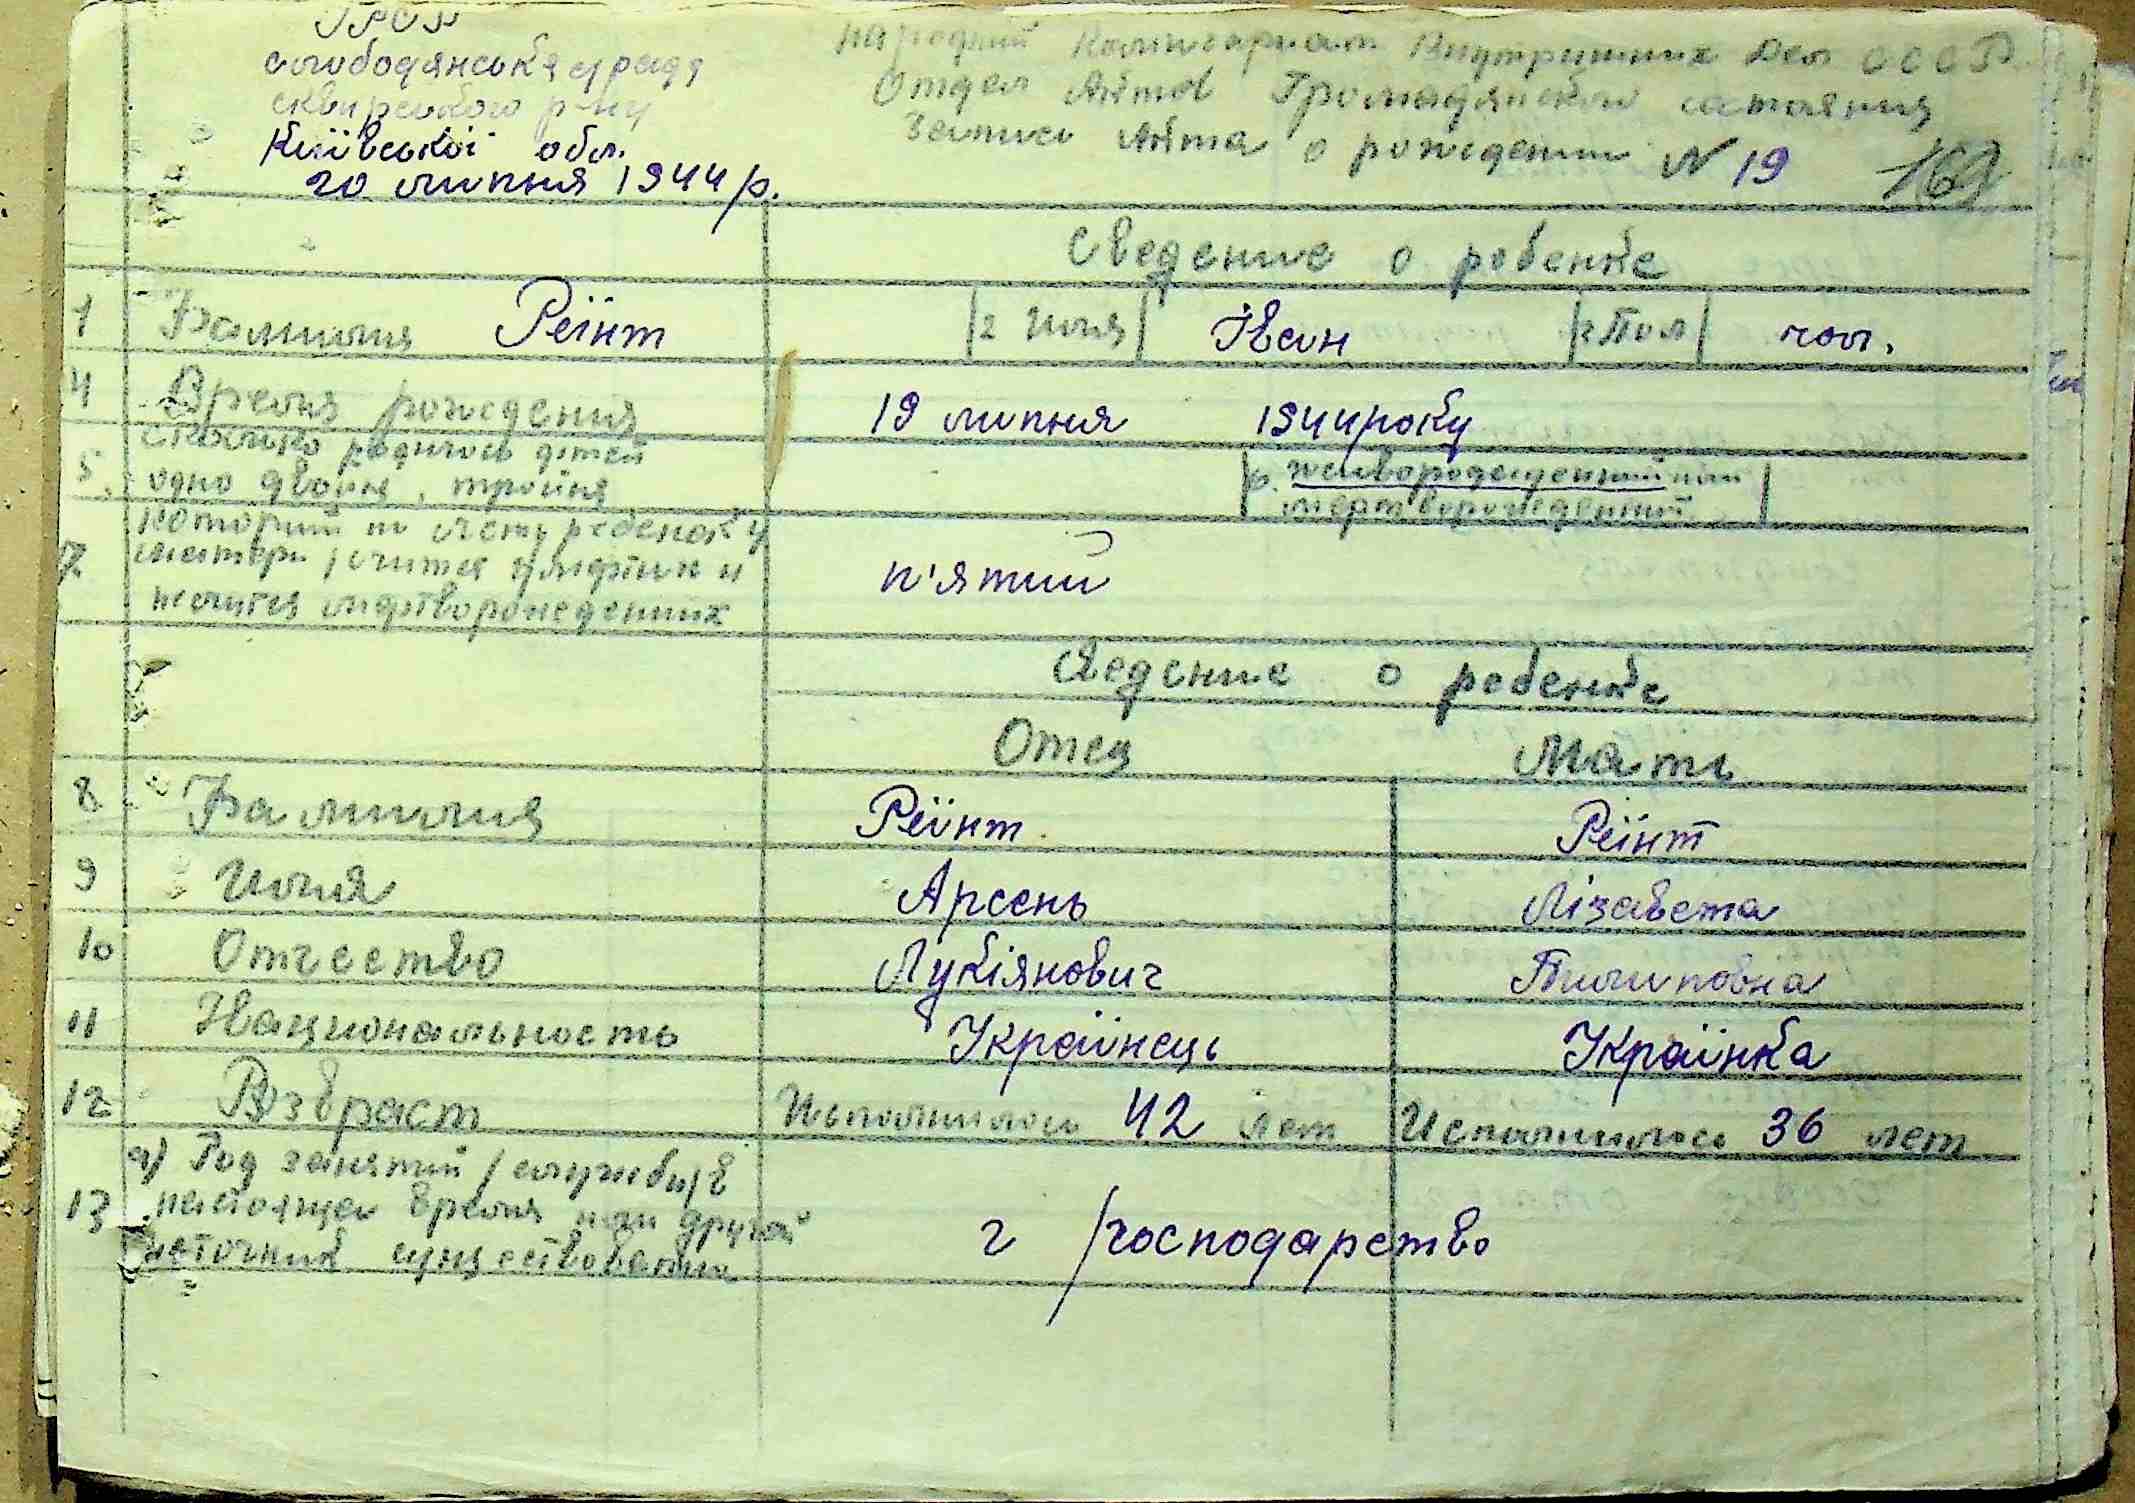 УРСР
слободянська с/рада
сквирського р-ну
Київської обл.
20 липня 1944 р.
Народний Комисариат Внутринних Дел СССР
Отдел Актов Громадянского состояния
Запись Акта о рождении N 19 169
Сведение о ребенке
1 Фамилия Реїнт 2 Имя Іван 3 Пол чол.
4 Время рождения 19 липня 1944 року
5. сколько родилось детей
одно двойня, тройня
6. живорожденный или
мертворожденний
который по счету ребенок у
7 матери /считая умерших и
мертворожденних п'ятий
Сведение о ребенке
Отец Мать
8 Фамилия Реїнт Реїнт
9 Имя Арсень Лізавета
10 Отчество Лукіянович Пилиповна
11 Национальность Українець Українка
12 Возвраст Исполнилось 42 лет Исполнилось 36 лет
а) Род занятий /службы/ в
13 настоящее время или другой
источник существования г /господарство